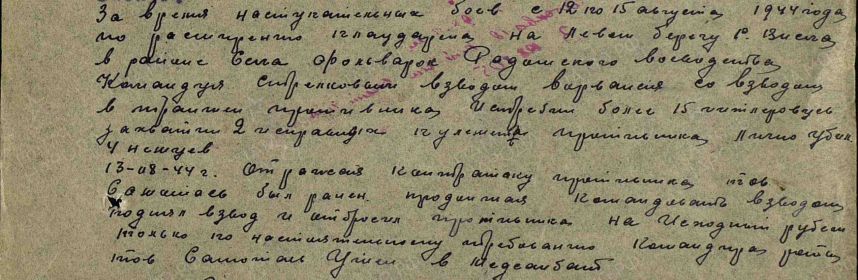 За время наступательных боев с 12 по 15 августа 1944 года
по расширению плацдарма на левом берегу р. Висла
в районе села Фольварок Радомского воеводства
Командуя стрелковым взводом ворвался со взводом
в траншеи противника истребил более 15 гитлеровцев
захватил 2 исправных пулемета противника лично убил
4 немцев
13-08-44 г. Отражая контратаку противника тов
был ранен. продолжая командовать взводом
поднял взвод и отбросил противника на исходный рубеж
только по настоятельному требованию командира роты
тов ушел в медсанбат